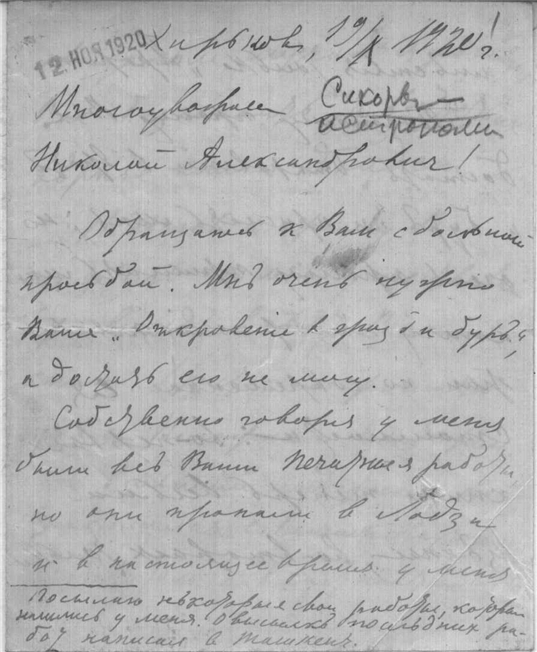 12 НОЯ 1920
Харьков, 19/X 1920 г.
Многоуважаем
Николай Александрович!
Обращаюсь к Вам с большой
просьбой. Мнѣ очень нужно
Ваше „Откровеніе в грозѣ и бурѣ“,
а достать его не могу.
Собственно говоря у меня
были всѣ Ваши печатныя работы
но они пропали в Лодзи
и в настоящее время у меня
Посылаю нѣкоторыя свои работы, которыя
нашлись у меня. О высылкѣ послѣдних ра-
бот написал в Ташкент.